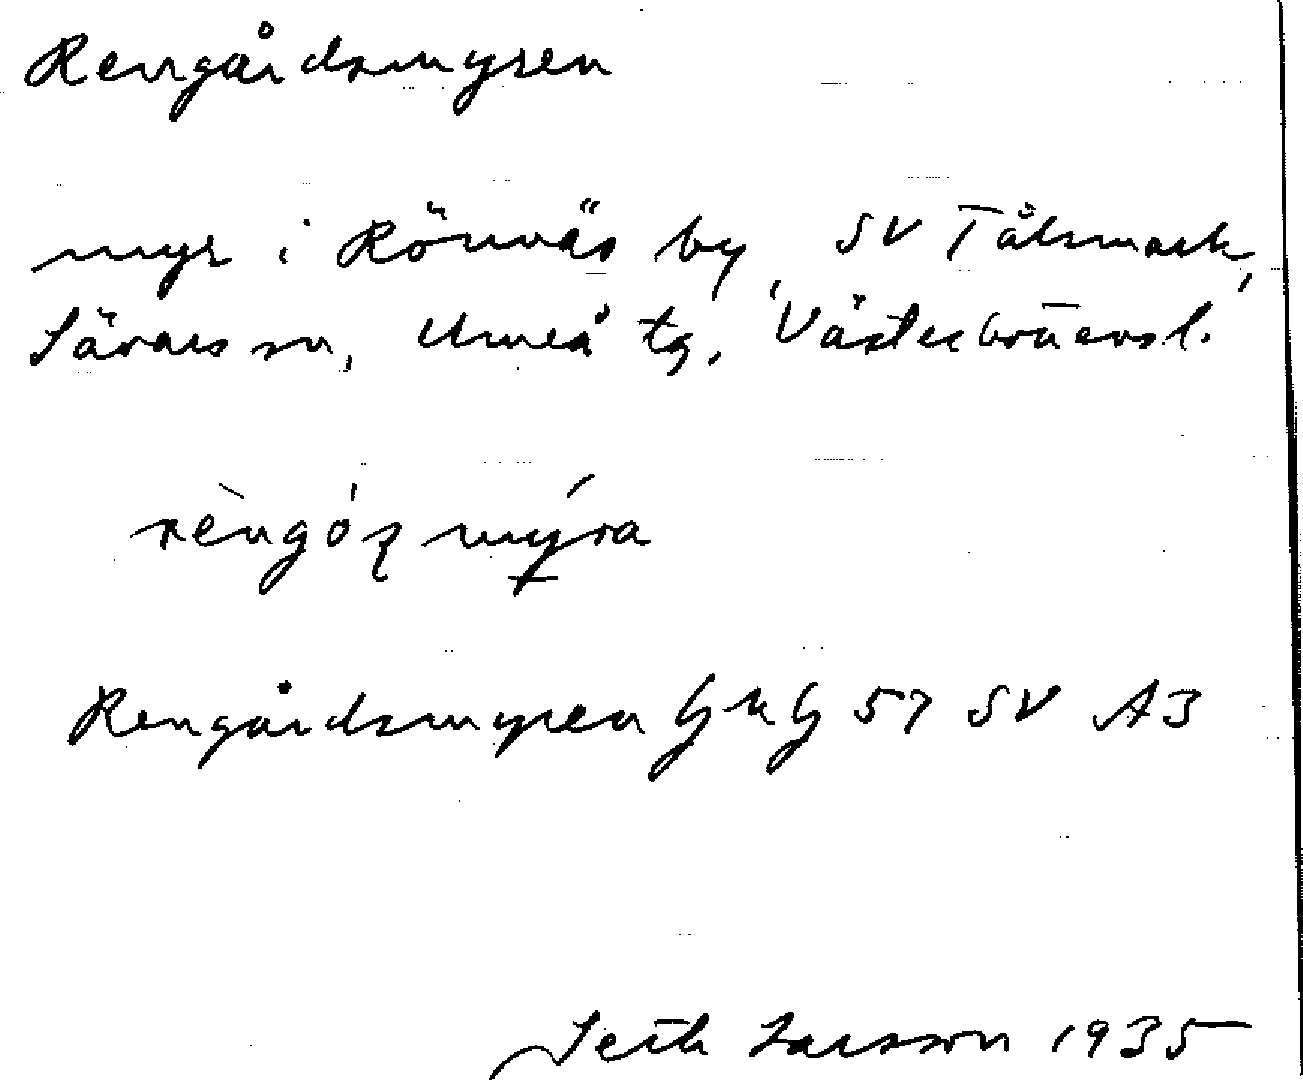 Rengårdsmyren
myr i Rönnäs by, SV Tålsmark,
Sävars sn, Umeå tg, Västerbottensl.
Rengårdsmyren GKG 57 SV A3
Seth Larsson 1935